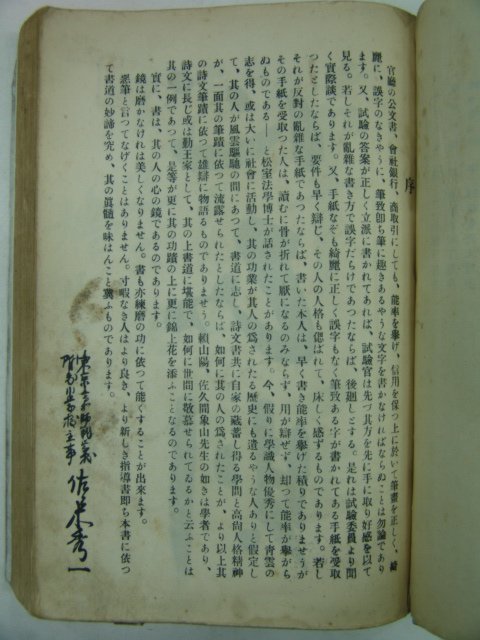 序
官廳の公文書、會社銀行、商取引にしても、能率を擧げ、信用を保つ上に於いて筆畫を正しく、綺
麗に、誤字のなきやうに、筆致即ち筆に趣きあるやうな文字を書かなければならぬことは勿論であり
ます。又、試驗の答案が正しく立派に書かれてあれば、試驗官は先づ其方を先に手に取り好感を以て
見る。若しそれが亂雜な書き方で誤字だらけであつたならば、後廻しとする。是れは試驗委員より聞
く實際談であります。又、手紙なども綺麗に正しく誤字もなく筆致ある字が書かれてある手紙を受取
つたとしたならば、要件も早く辯じ、その人の人格も偲ばれて、床しく感ずるものであります。若し
それが反對の亂雜な手紙であつたならば、書いた本人は、早く書き能率を擧げた積りでありませうが
その手紙を受取つた人は、讀むに骨が折れて厭になるのみならず、用が辯ぜず、却つて能率が擧がら
ぬものである――と松室法學博士が話されたことがあります。今、假りに學識人物優秀にして靑雲の
志を得、或は大いに社會に活動し、其の功業が其人の爲されたる歷史にも遺るやうな人ありと假定し
て、其の人が風雲驅馳の間にあつて、書道に志し、詩文書共に自家の蘊蓄し得る學問と高尙人格精神
が、一面其の筆蹟に依つて流露せられたとしたならば、如何に其の人の爲されたことが、より以上其
の詩文筆蹟に依つて雄辯に物語るものでありませう。賴山陽、佐久間象山先生の如きは學者であり、
詩文に長じ或は勤王家として、其の上書道に堪能で、如何に世間に敬慕せられてゐるかと云ふことは
其の一例であつて、是等が更に其の功蹟の上に更に錦上花を添ふことなるのであります。
實に、書は、其の人の心の鏡であるのであります。
鏡は磨かなければ美しくなりません。書も亦練磨の功に依つて能くすることが出來ます。
惡筆と言つてなげくことはありません。寸暇なき人はより良き、より新しき指導書即ち本書に依つ
て書道の妙諦を究め、其の眞髓を味はんこと冀ふものであります。
佐 秀一